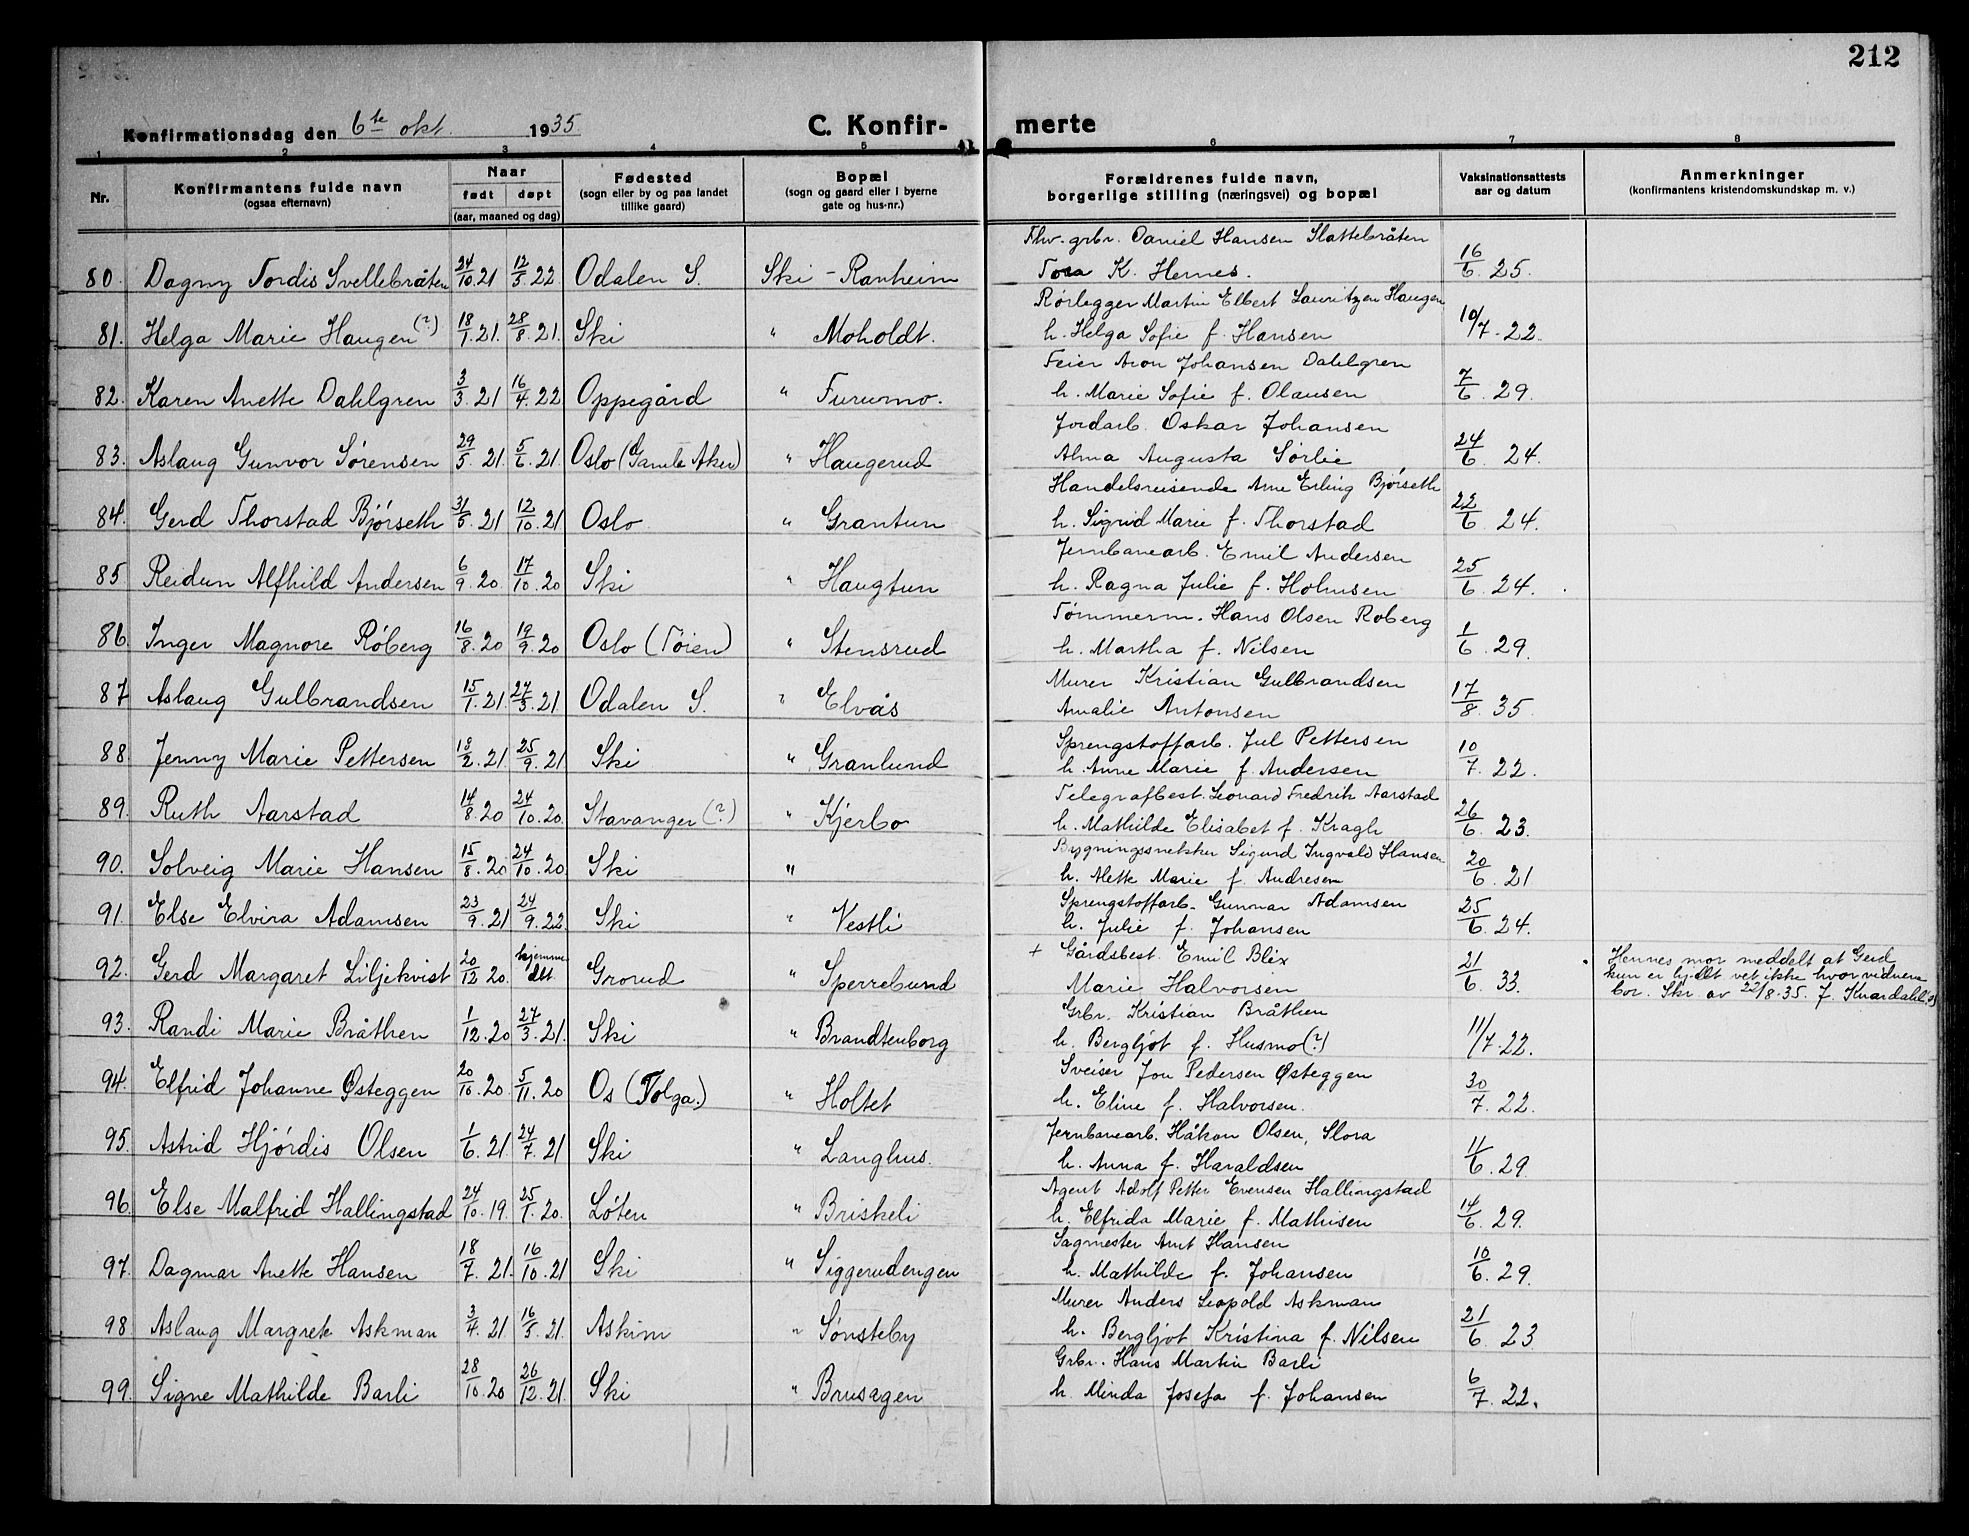 212
Konfirmationsdag den 6te okt. 1935. C. Konfir- merte
1 2 3 4 5 6 7 8
Nr. Konfirmantens fulde navn (ogsaa efternavn) Naar født døpt (aar, maaned og dag) Fødested (sogn eller by og paa landet tillike gaard) Bopæl (sogn og gaard eller i byerne gate og hus-nr.) Forældrenes fulde navn, borgerlige stilling (næringsvei) og bopæl Vaksinationsattests aar og datum Anmerkninger (konfirmantens kristendomskundskap m. v.)
Fhv. grbr. Daniel Hansen Slattebråten
80. Dagny Tordis Svellebråten 24/10.21 12/5.22 Odalen S. Ski - Ranheim Tora K. Hernes. 16/6.25.
Rørlegger Martin Elbert Lauritzen Haugen
81. Helga Marie Haugen (?) 18/1.21. 28/8.21. Ski " Moholdt. h. Helga Sofie f. Hansen 10/7.22.
Feier Aron Johansen Dahlgren
82. Karen Anette Dahlgren 3/3.21 16/4.22 Oppegård " Furumo. h. Marie Sofie f. Olausen 7/6.29.
Jordarb. Oskar Johansen
83. Aslaug Gunvor Sørensen 29/5.21. 5/6.21. Oslo (Gamle Aker) " Haugerud Alma Augusta Sørlie 24/6.24.
Handelsreisende Arne Erling Bjørseth
84. Gerd Thorstad Bjørseth 31/5.21 12/10.21 Oslo " Grantun h. Sigrid Marie f. Thorstad 22/6.24.
Jernbanearb. Emil Andersen
85 Reidun Alfhild Andersen 6/9.20 17/10.20 Ski " Haugtun h. Ragna Julie f. Holmsen 25/6.24.
Tømmerm. Hans Olsen Roberg
86. Inger Magnore Røberg 16/8.20 19/9.20 Oslo (Tøien) " Stensrud h. Martha f. Nilsen 1/6.29.
Murer Kristian Gulbrandsen
87 Aslaug Gulbrandsen 15/1.21. 27/3.21. Odalen S. " Elvås Amalie Antonsen 17/8.35.
Sprengstoffarb. Jul Pettersen
88. Jenny Marie Pettersen 18/2.21. 25/9.21 Ski " Granlund h. Anne Marie f. Andersen 10/7.22.
Telegrafbest. Leonard Fredrik Aarstad
89. Ruth Aarstad 14/8.20 24/10.20. Stavanger (?) " Kjerbo h. Mathilde Elisabet f. Kragh 26/6.23.
Bygningssnekker Sigurd Ingvald Hansen
90. Solveig Marie Hansen 15/8.20 24/10.20 Ski " h. Alette Marie f. Andresen 20/6.21
Sprengstoffarb. Gunnar Adamsen
91. Else Elvira Adamsen 23/9.21 24/9.22. Ski " Vestli h. Julie f. Johansen 25/6.24.
+ Gårdsbest. Emil Blix Hennes mor meddelt at Gerd
92. Gerd Margaret Liljekvist 20/12.20. hjemmedøt. Grorud " Sperrebund Marie Halvorsen 21/6.33. kun er hj.døt vet ikke hvor vidnene
bor. Skr. av 22/8.35.
Grbr. Kristian Bråthen
93. Randi Marie Bråthen 1/12.20 27/3.21. Ski " Brandtenborg h. Bergljot f. Husmo (?) 11/7.22.
Sveiser Jon Pedersen Østeggen
94. Elfrid Johanne Østeggen 20/10.20. 5/11.20 Os (Tolga.) " Holtet h. Eline f. Halvorsen. 30/7.22.
Jernbanearb. Håkon Olsen, Slora
95. Astrid Hjørdis Olsen 1/6.21. 24/7.21 Ski " Langhus. h. Anna f. Haraldsen 11/6.29
Agent Adolf Petter Evensen Hallingstad
96. Else Malfrid Hallingstad 24/10.19. 25/1.20. Løten " Briskeli h. Elfrida Marie f. Mathisen 14/6.29.
Sagmester Amt Hansen
97. Dagmar Anette Hansen 18/7.21. 16/10.21 Ski " Siggerudengen h. Mathilde f. Johansen 10/6.29.
Murer Anders Leopold Askman
98 Aslaug Margrete Askman 3/4.21 16/5.21. Askim " Sønsteby h. Bergljot Kristina f. Nilsen 21/6.23
Grbr. Hans Martin Barli
99. Signe Mathilde Barli 28/10.20 26/12.21. Ski " Brusagen h. Minda Josefa f. Johansen 6/7.22.